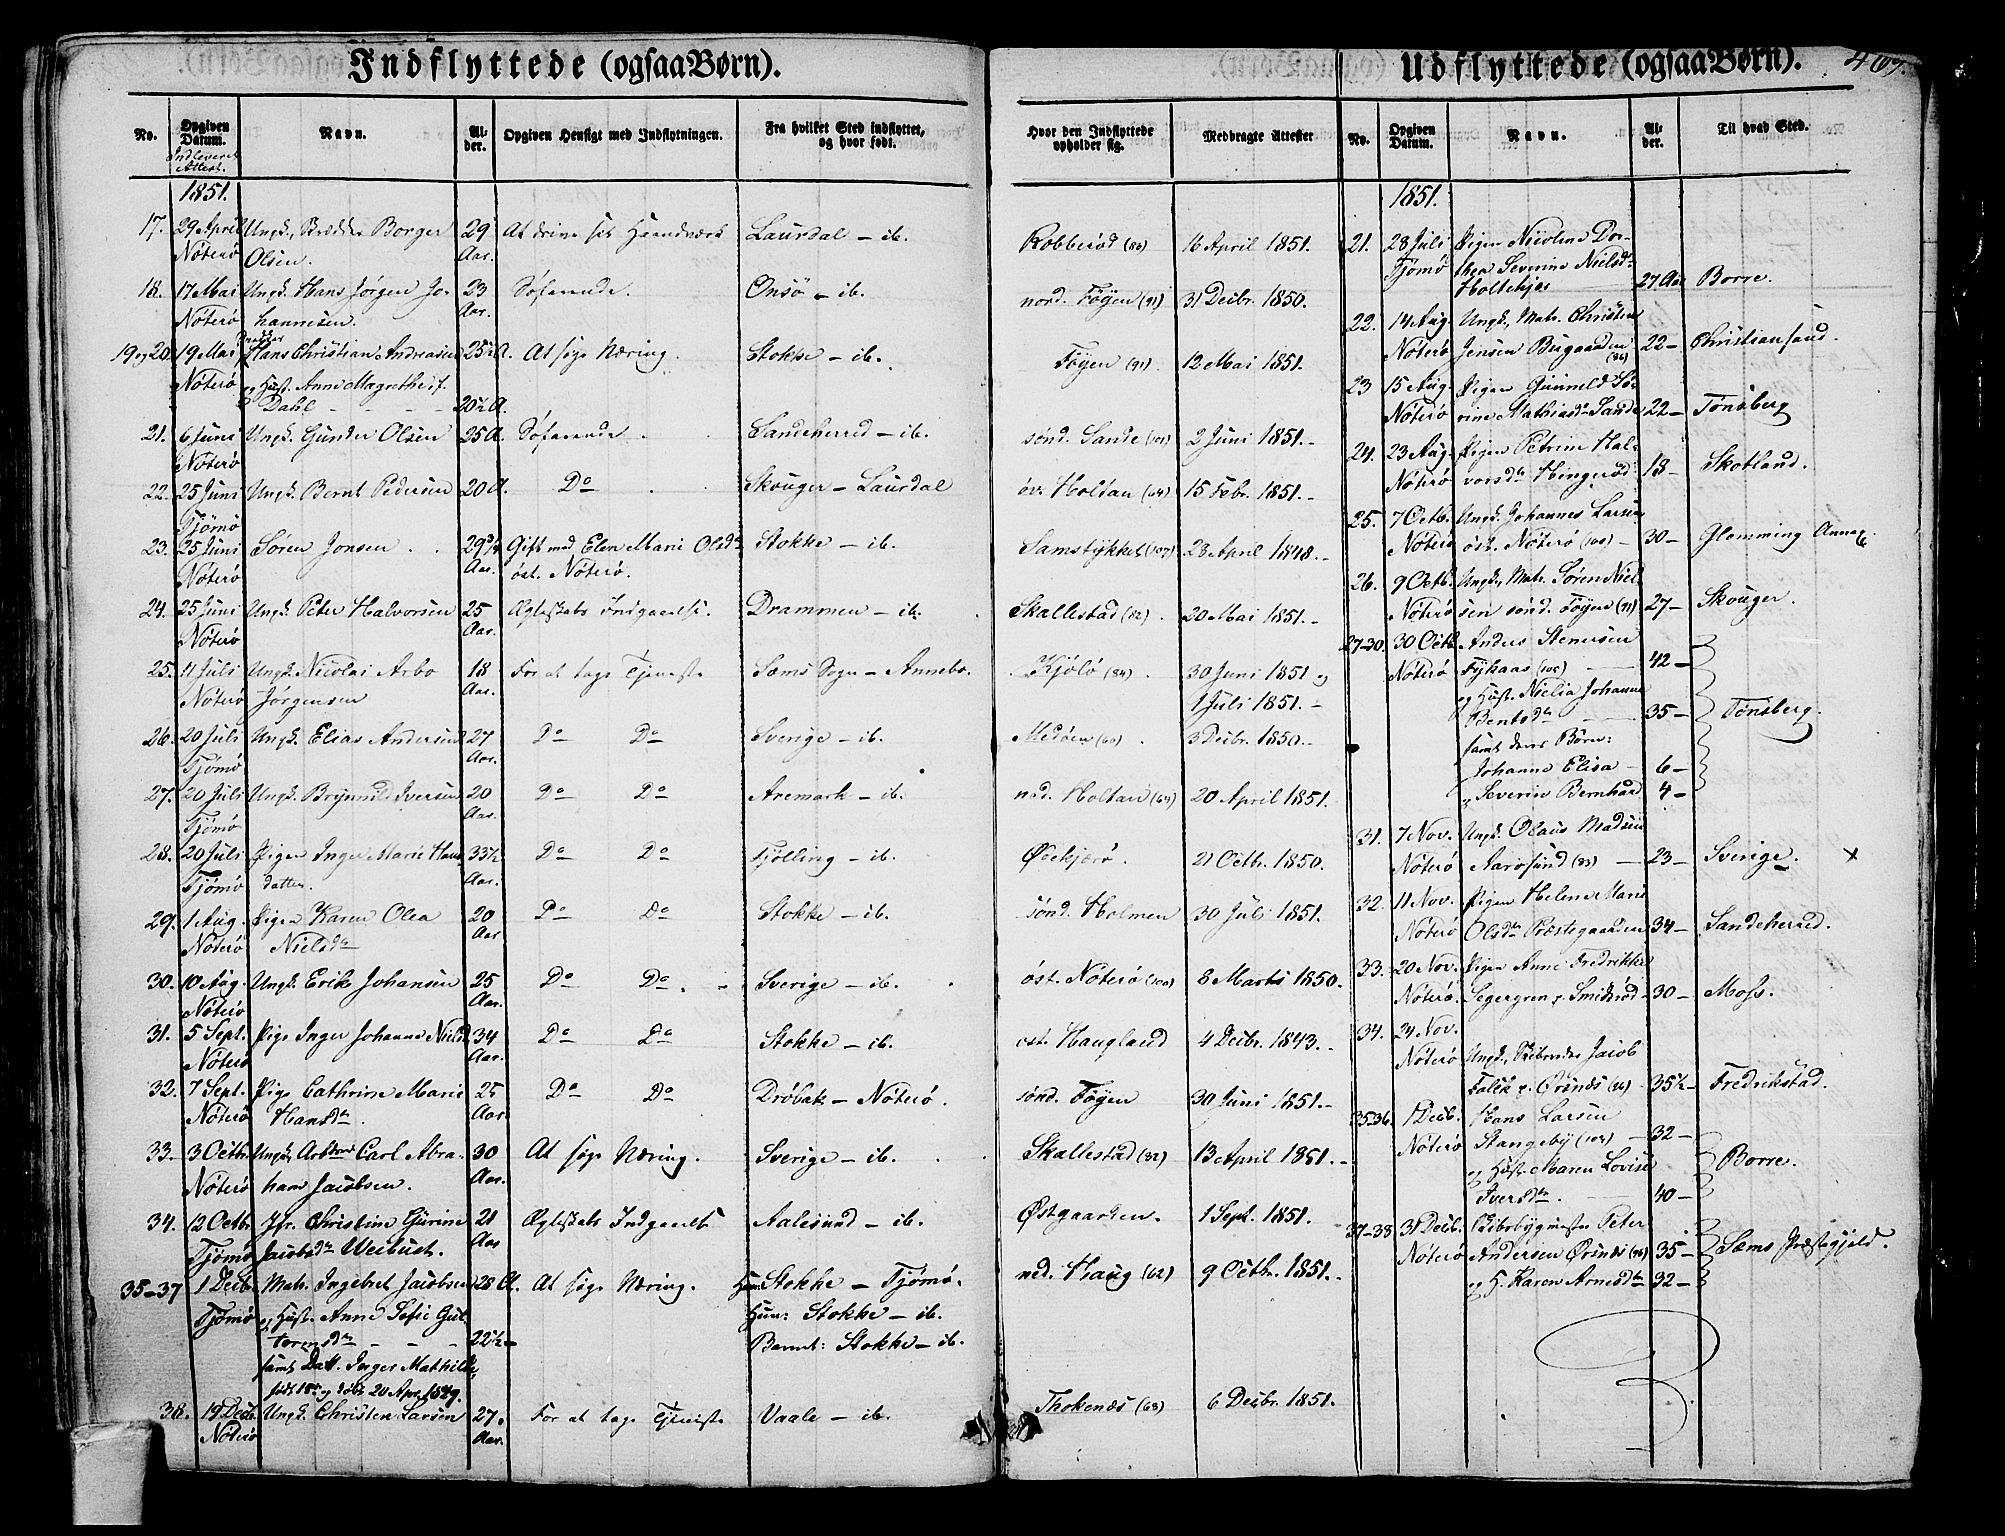 Indflyttede (ogsaa Børn).
No.
Opgiven Datum.
Indleveret Attest.
Navn.
Alder.
Opgiven Hensigt med Indflytningen.
Fra hvilket Sted indflyttet, og hvor født.
1851.
17. 29 April Ungk. Borger 29 At drive sit Haandværk Laurdal – ib.
Nøterø Olsen. Aar.
18. 17 Mai Ungk. Hans Jørgen Jo- 23 Søfarende. Onsö – ib.
Nøterø hannesen. Aar.
19 og 20. 19 Mai Hans Christian Andreasen 25½ A. At søge Næring. Stokke – ib.
Nøterø og Hust. Anne Magrethe f.
Dahl - - - 20½ A.
21. 6 Juni Ungk. Gunder Olsen 25 A. Søfarende. Sandeherred – ib.
Nøterø
22. 25 Juni Ungk. Bernt Pedersen 20 A. Do Skouger – Laurdal
Tjømø
23. 25 Juni Søren Jonsen 29 Gift med Elen Marie Olsdr Stokke – ib.
Nøterø Aar. øst. Nøterø.
24. 25 Juni Ungk. Peter Halvorsen 25 Ægteskabs Indgaaelse. Drammen – ib.
Nøterø Aar.
25. 11 Juli Ungk. Nicolai Arbo 18 For at tage Tjeneste Sæms Sogn – Annebo.
Nøterø Jørgensen Aar.
26. 20 Juli Ungk. Elias Andersen 27 Do Do Sverige – ib.
Tjømø Aar.
27. 20 Juli Ungk. Iversen 20 Do Do Aremark – ib.
Tjømø Aar.
28. 20 Juli Pigen Inger Marie Hans- 33½ Do Do Tjølling – ib.
Tjømø datter. Aar.
29. 1 Aug. Pigen Karen Olea 20 Do Do Stokke – ib.
Nøterø Nielsdr Aar
30. 10 Aug. Ungk. Erik Johansen 25 Do Do Sverige – ib.
Nøterø Aar.
31. 5 Sept. Pige Inger Johanne Nielsd. 34 Do Do Stokke – ib.
Nøterø Aar.
32. 7 Sept. Pige Cathrine Marie 25 Do Do Drøbak – Nøterø.
Nøterø Hansdr. Aar.
33. 3 Octbr Ungk. Carl Abra- 30 At søge Næring. Sverige – ib.
Nøterø ham Jacobsen. Aar.
34. 12 Octbr Jfr. Christine Gurine 21 Ægteskabs Indgaaelse Aalesund – ib.
Tjømø Jacobsdr Weibust. Aar
35–37 1 Decbr. Matr. Ingebret Jacobsen 28 A. At søge Næring. Han: Stokke – Tjømø.
Tjømø og Hust. Anne Sofie Gut- Hun: Stokke – ib.
tormsdr - - - 22½ – Barnet: Stokke – ib.
samt Datt. Inger Mathilde,
født og døbt 20 Apr. 1849.
38. 19 Decbr. Ungk. Christen Larsen 27. For at tage Tjeneste Vaale – ib.
Nøterø Aar.
Udflyttede (ogsaa Børn). 467.
Hvor den Indflyttede opholder sig.
Medbragte Attester
No.
Opgiven Datum.
Navn.
Alder.
Til hvad Sted.
Robberød (83) 16 April 1851.
nord. Føyen (91) 31 Decbr. 1850.
Føyen (91). 12 Mai 1851.
sønd. Sande (101) 2 Juni 1851. –
øv. Holtan (64) 15 Febr. 1851. –
Samstykket (107) 23 April 1848. –
Skallestad (82). 20 Mai 1851. –
Kjølø (84). 30 Juni 1851 og
1 Juli 1851. –
Medøen (60). 3 Decbr. 1850. –
ned. Holtan (64) 20 April 1851.
Øvekjærø. 21 Octbr. 1850.
sønd. Holmen 30 Juli 1851.
øst. Nøterø (100) 8 Marts 1850.
øst. Haugland 4 Decbr. 1843. –
sønd. Føyen 30 Juni 1851. –
Skallestad (82) 13 April 1851. –
Østgaarden. 1 Sept. 1851.
ned. Haug (62) 9 Octbr. 1851. –
Thokenæs (68) 6 Decbr. 1851.
1851.
21. 28 Juli Pigen Nicoline Dor-
Tjømø thea Severine Nielsdr
Holtekjær 27 Aar Borre.
22. 14 Aug. Ungk. Matr. Christen
Nøterø Jensen Bugaarden (86) 22 – Christiansand.
23 15 Aug. Pigen Gunneld Sø-
Nøterø rine Mathiasdr Sande 22 – Tønsberg
24. 23 Aug. Pigen Petrine Hal-
Nøterø vorsdr Hingerød 18 – Skotland.
25. 7 Octb. Ungk. Johannes Larsen
Nøterø øst. Nøterø (100) – 30 – Glemming Annex.
26. 9 Octb. Ungk. Matr. Søren Niel-
Nøterø sen sønd. Føyen (91) 27 – Skouger.
27–30. 30 Octb. Anders Stenersen
Nøterø (106) 42 –
og Hust. Nielia Johanne
Bentsdr 35 – Tønsberg.
samt deres Børn:
Johanne Elisa – 6 –
og Severin Bernhard 4 –
31. 7 Nov. Ungk. Olaus Madsen
Nøterø Aarøsund (83) 23 – Sverige. ×
32. 11 Nov. Pigen Helene Marie
Nøterø Olsdr Præstegaarden 34 – Sandeherred.
33. 20 Nov. Pigen Anne Fredrikke
Nøterø. Segergren p. Smidsrød 30 – Moss.
34. 24 Nov.
Nøterø Ungk. Skibstømr Jacob
Falck p. Ørsnæs (96) 35½ – Fredrikstad.
35–36. 1 Decb. Hans Larsen
Nøterø Stangeby (104) – 32 –
og Hust. Maren Lovise Borre.
Iversdr. 40 –
37–38 31 Decb. Skibsbygmester Peter
Nøterø Andersen Ørsnæs (96) 35 – Sæms Præstegjeld.
og H. Karen Arnesdr 32 –